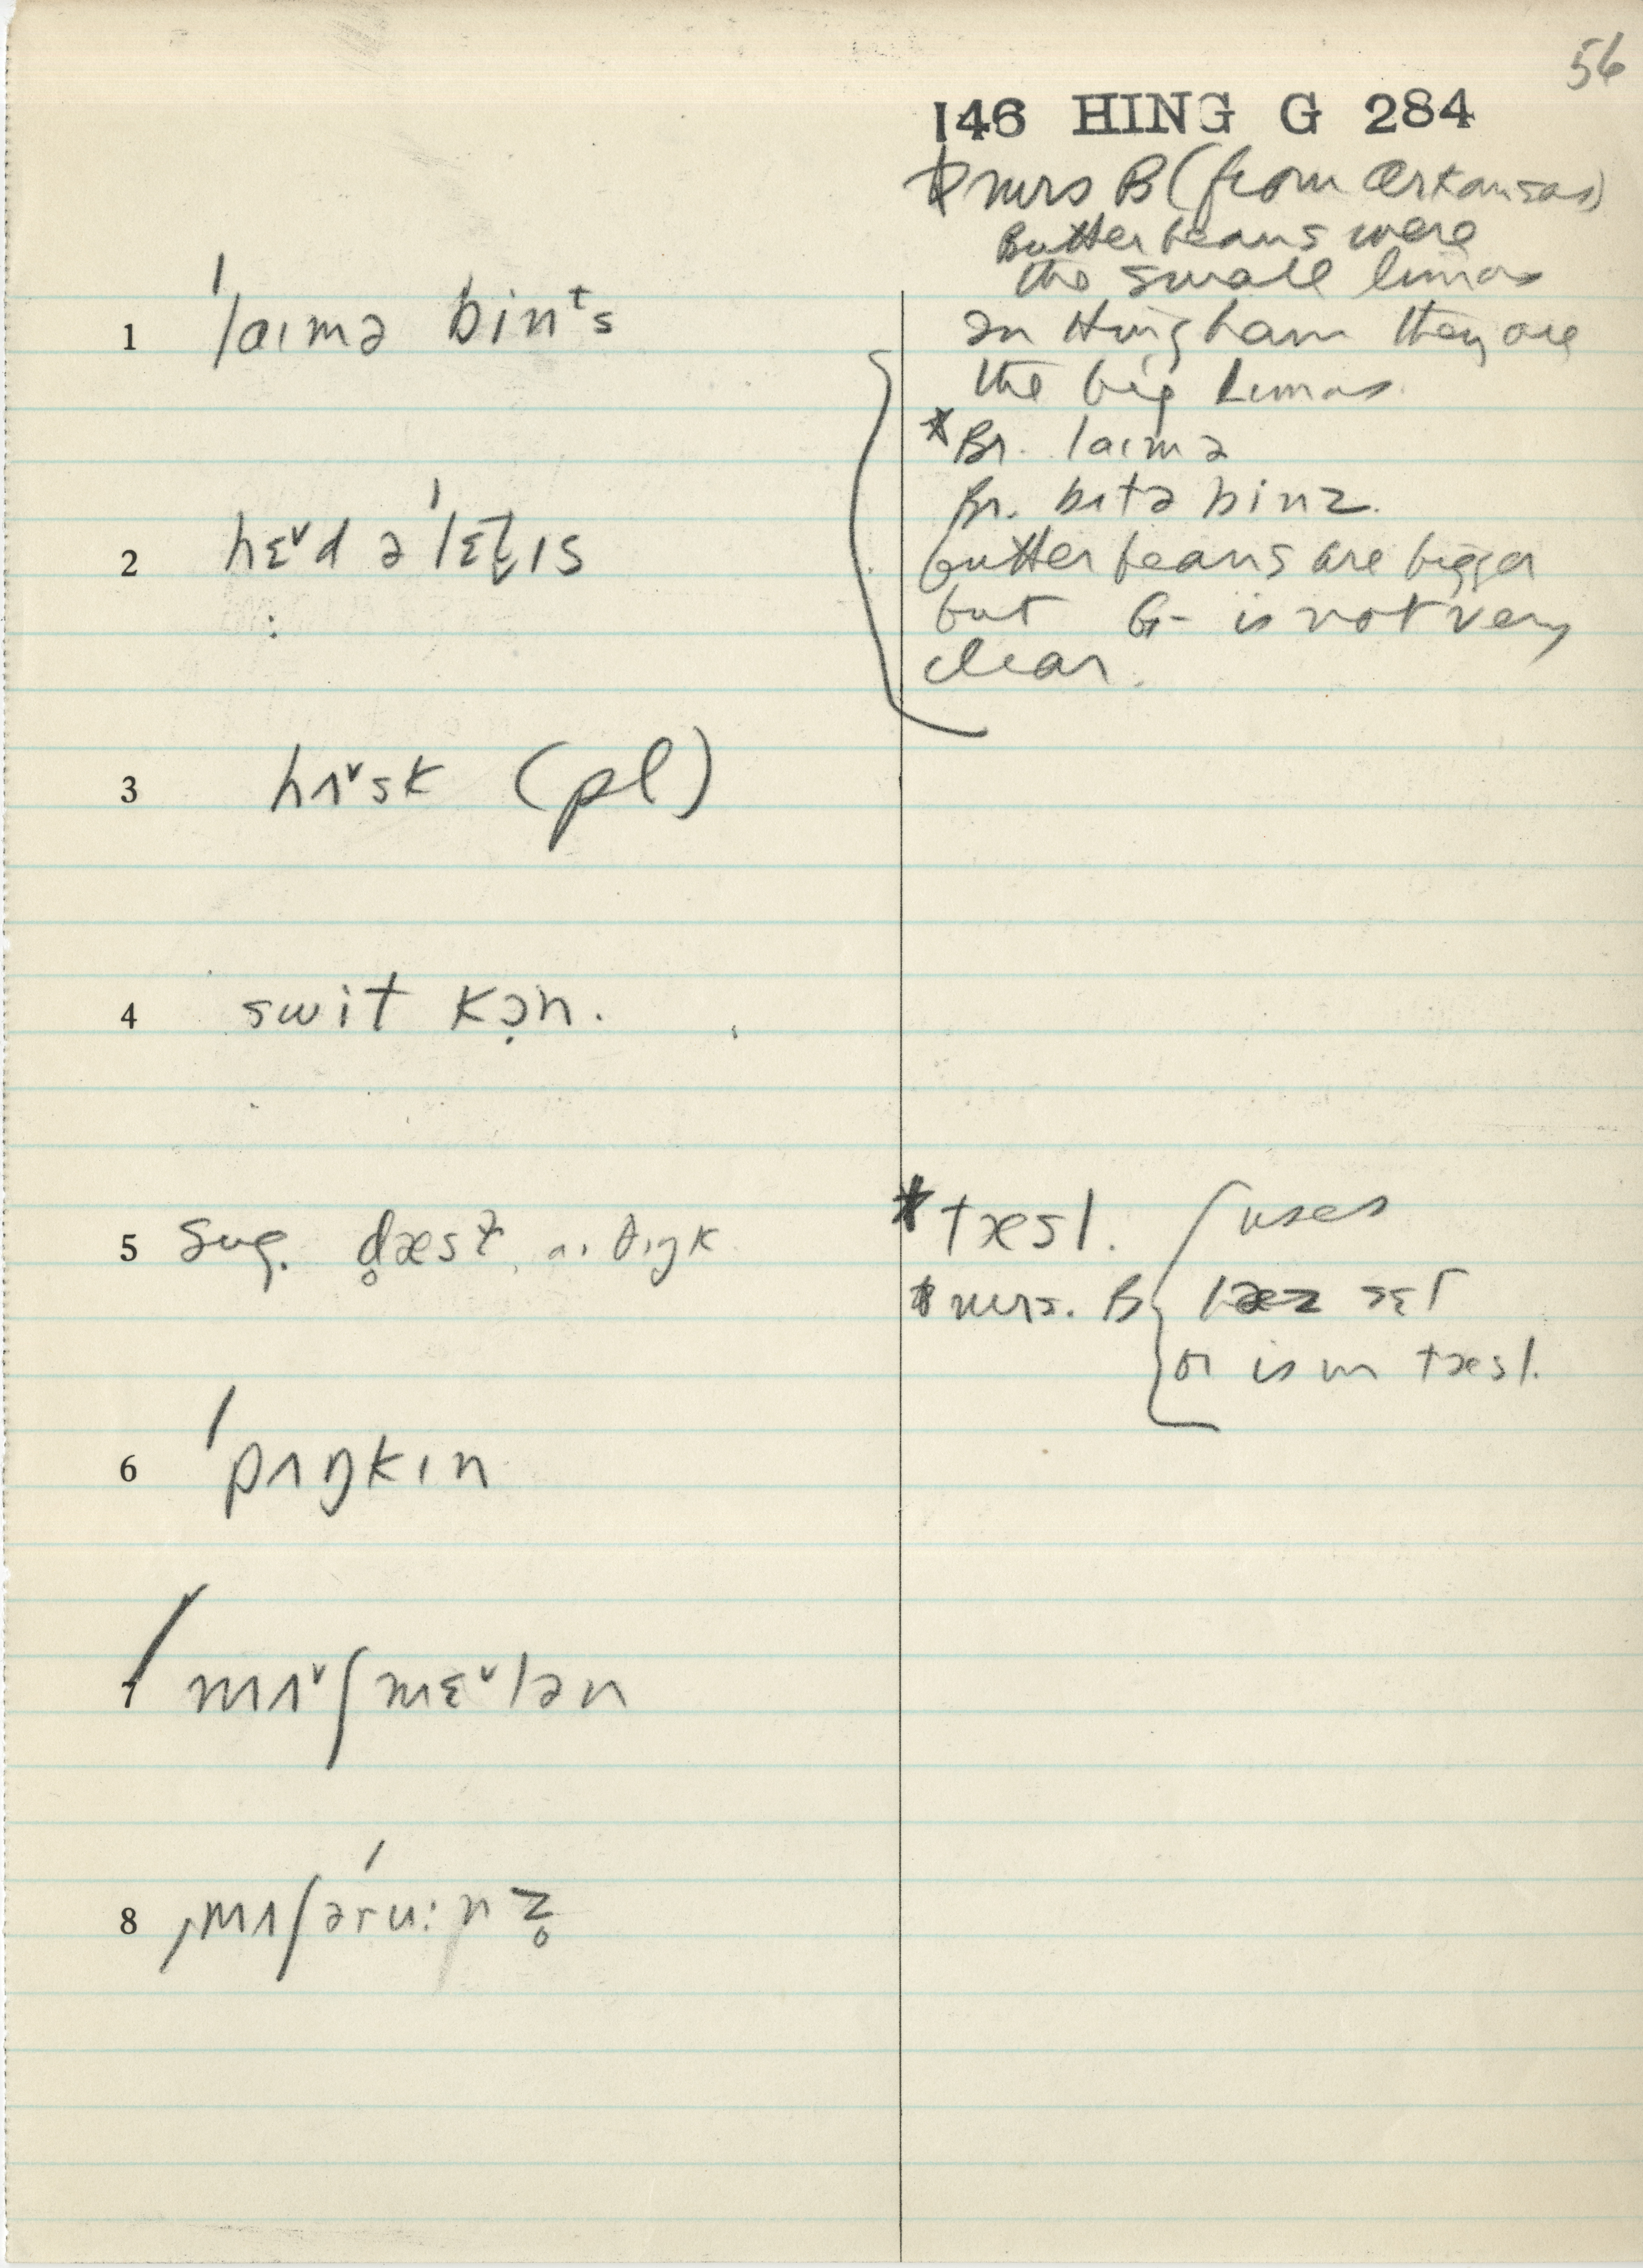 56
146 HING G 284
* Mrs B (from Arkansas)
Butter beans were
the small limas
In Hingham they are
the big Limas.
1 ˈlaɪmə binᵗs
* Br. laɪmə
Br. bʌtə binz.
2 hɛ˅d əˈlɛt̬ɪs
butter beans are bigger
but G- is not very
clear.
3 hʌ˅sk (pl)
4 swit kɔ̣n.
5 sug. d̥æsɫ, aɪ θɪŋk
* tæsl.
* Mrs. B { uses
sɛl
or is in tæsl.
6 ˈpʌŋkɪn
7 ˈmʌ˅ʃmɛ˅lən
8 ˌmʌʃəˈru:nz̥